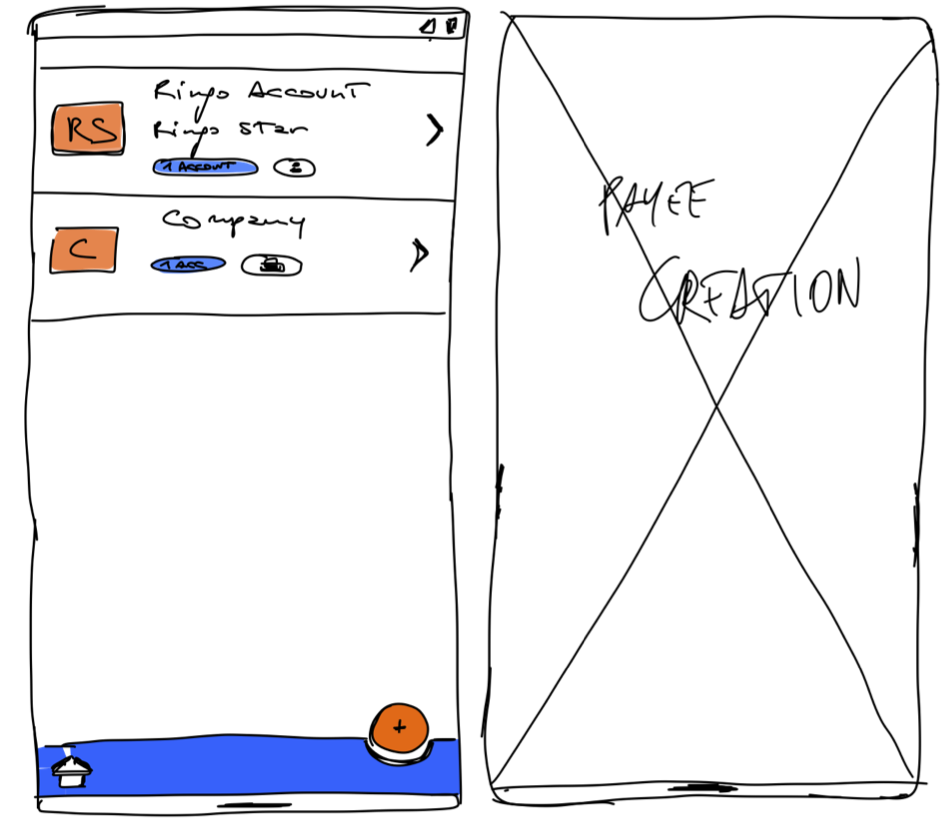 Ringo Account
RS
Ringo Star
1 Account
Company
C
1 Acc
+
PAYEE
CREATION